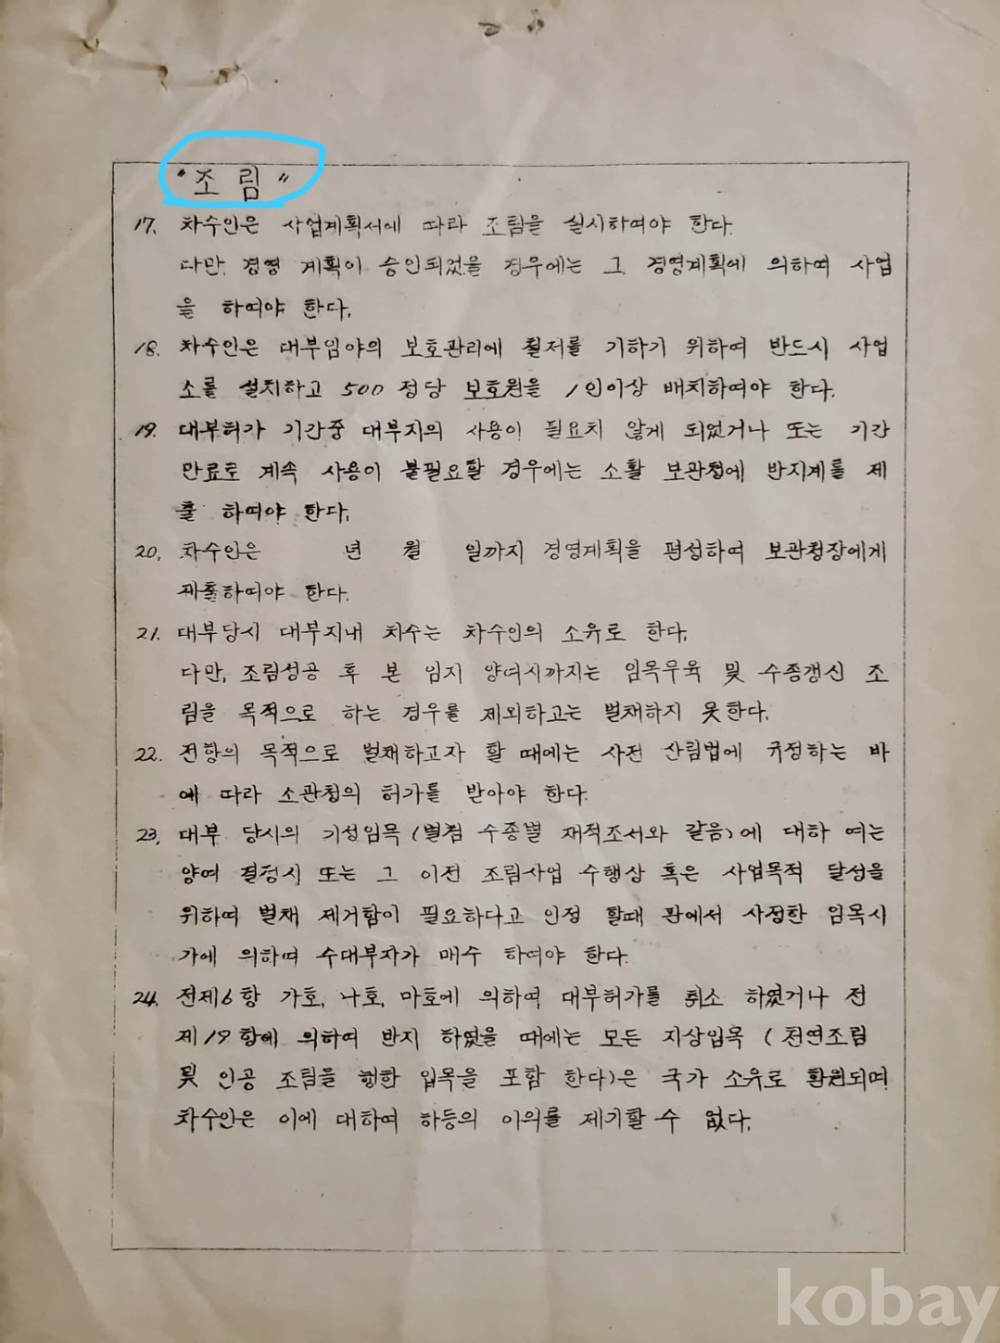 "조 림"
17. 차수인은 사업계획서에 따라 조림을 실시하여야 한다.
다만, 경영 계획이 승인되었을 경우에는 그 경영계획에 의하여 사업
을 하여야 한다.
18. 차수인은 대부임야의 보호관리에 철저를 기하기 위하여 반드시 사업
소를 설치하고 500 정당 보호원을 1인이상 배치하여야 한다.
19. 대부허가 기간중 대부지의 사용이 필요치 않게 되었거나 또는 기간
만료로 계속 사용이 불필요할 경우에는 소활 보관청에 반지계를 제
출 하여야 한다.
20. 차수인은 년 월 일까지 경영계획을 편성하여 보관청장에게
제출하여야 한다.
21. 대부당시 대부지내 치수는 차수인의 소유로 한다.
다만, 조림성공 후 본 임지 양여시까지는 임목무육 및 수종갱신 조
림을 목적으로 하는 경우를 제외하고는 벌채하지 못한다.
22. 전항의 목적으로 벌채하고자 할 때에는 사전 산림법에 규정하는 바
에 따라 소관청의 허가를 받아야 한다.
23. 대부 당시의 기성임목 (별첨 수종별 재적조서와 같음)에 대하 여는
양여 결정시 또는 그 이전 조림사업 수행상 혹은 사업목적 달성을
위하여 벌채 제거함이 필요하다고 인정 할때 관에서 사정한 임목시
가에 의하여 수대부자가 매수 하여야 한다.
24. 전제6항 가호, 나호, 마호에 의하여 대부허가를 취소 하였거나 전
제19항에 의하여 반지 하였을 때에는 모든 지상입목 (천연조림
및 인공 조림을 행한 입목을 포함 한다)은 국가 소유로 환원되며
차수인은 이에 대하여 하등의 이의를 제기할 수 없다.
kobay